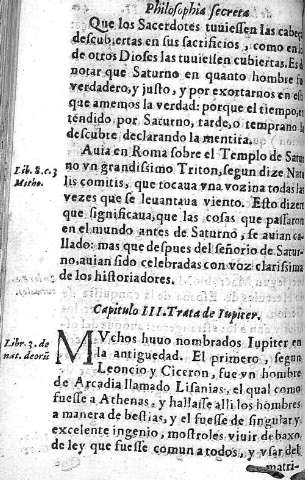 Philosophia secreta
Que los Sacerdotes tuuiessen las cabeç
descubiertas en sus sacrificios, como en l
de otros Dioses las tuuiessen cubiertas. Es d
notar que Saturno en quanto hombre fu
verdadero, y justo, y por exortarnos en est
que amemos la verdad: porque el tiempo, en
tendido por Saturno, tarde, o temprano l
descubre declarando la mentira.
Auia en Roma sobre el Templo de Satur
no vn grandissimo Triton, segun dize Nata
lis comitis, que tocaua vna vozina todas las
vezes que se leuantaua viento. Esto dizen
que significaua, que las cosas que passaron
en el mundo antes de Saturno, se auian ca-
llado: mas que despues del señorio de Satur-
no, auian sido celebradas con voz clarissima
de los historiadores.
Lib. 8. c. 3
Metho.
Capitulo III. Trata de Iupiter.
MVchos huuo nombrados Iupiter en
la antiguedad. El primero, segun
Leoncio y Ciceron, fue vn hombre
de Arcadia llamado Lisanias, el qual como
fuesse a Athenas, y hallasse alli los hombres
a manera de bestias, y el fuesse de singular y
excelente ingenio, mostroles viuir debaxo
de ley que fuesse comun a todos, y vsar del
matri-
Libr. 3. de
nat. deorũ